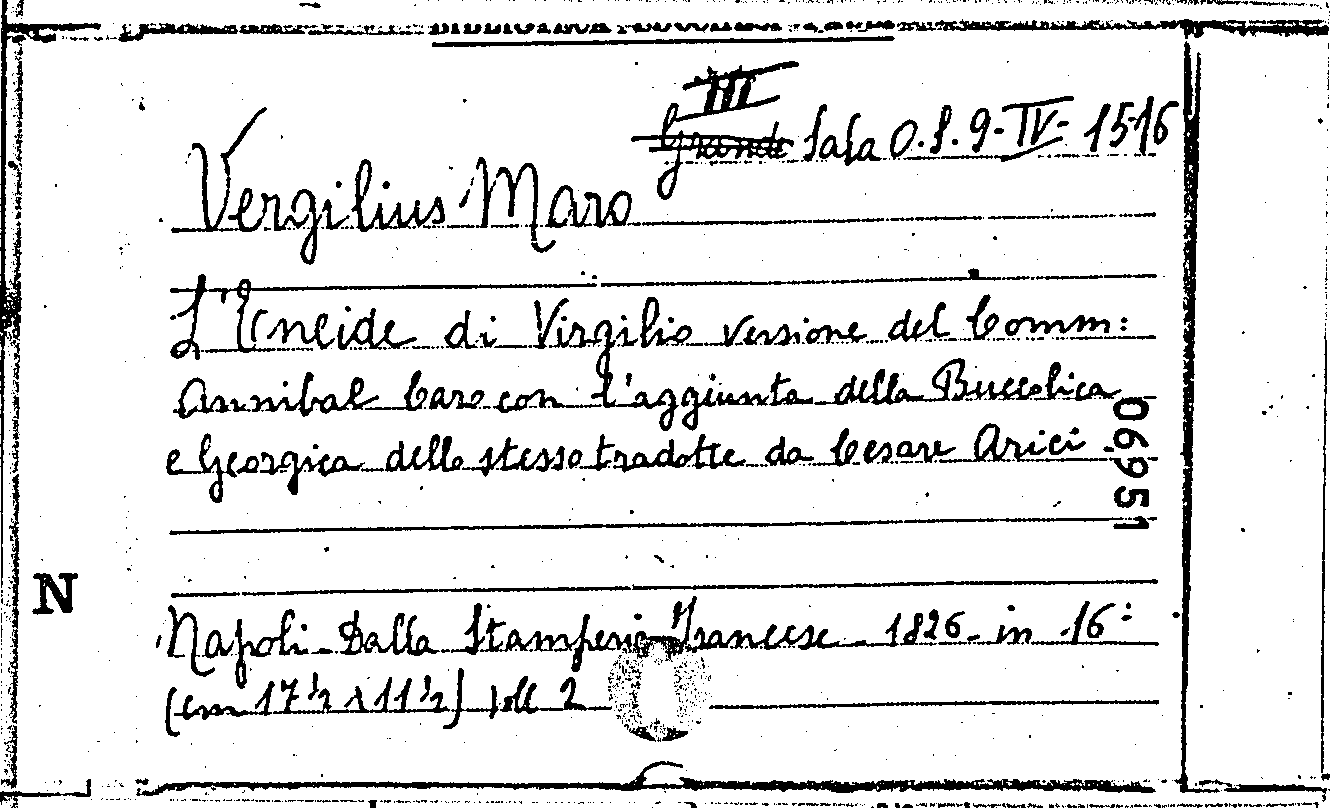 III
Grande Sala O.S. 9-IV- 15-16
Vergilius Maro
L'Eneide di Virgilio versione del Comm:
Annibal Caro con l'aggiunta della Buccolica
e Georgica dello stesso tradotte da Cesare Arici
06951
N
Napoli - Dalla Stamperia Francese - 1826 - in -16:
(cm 17½ x 11½) Voll 2